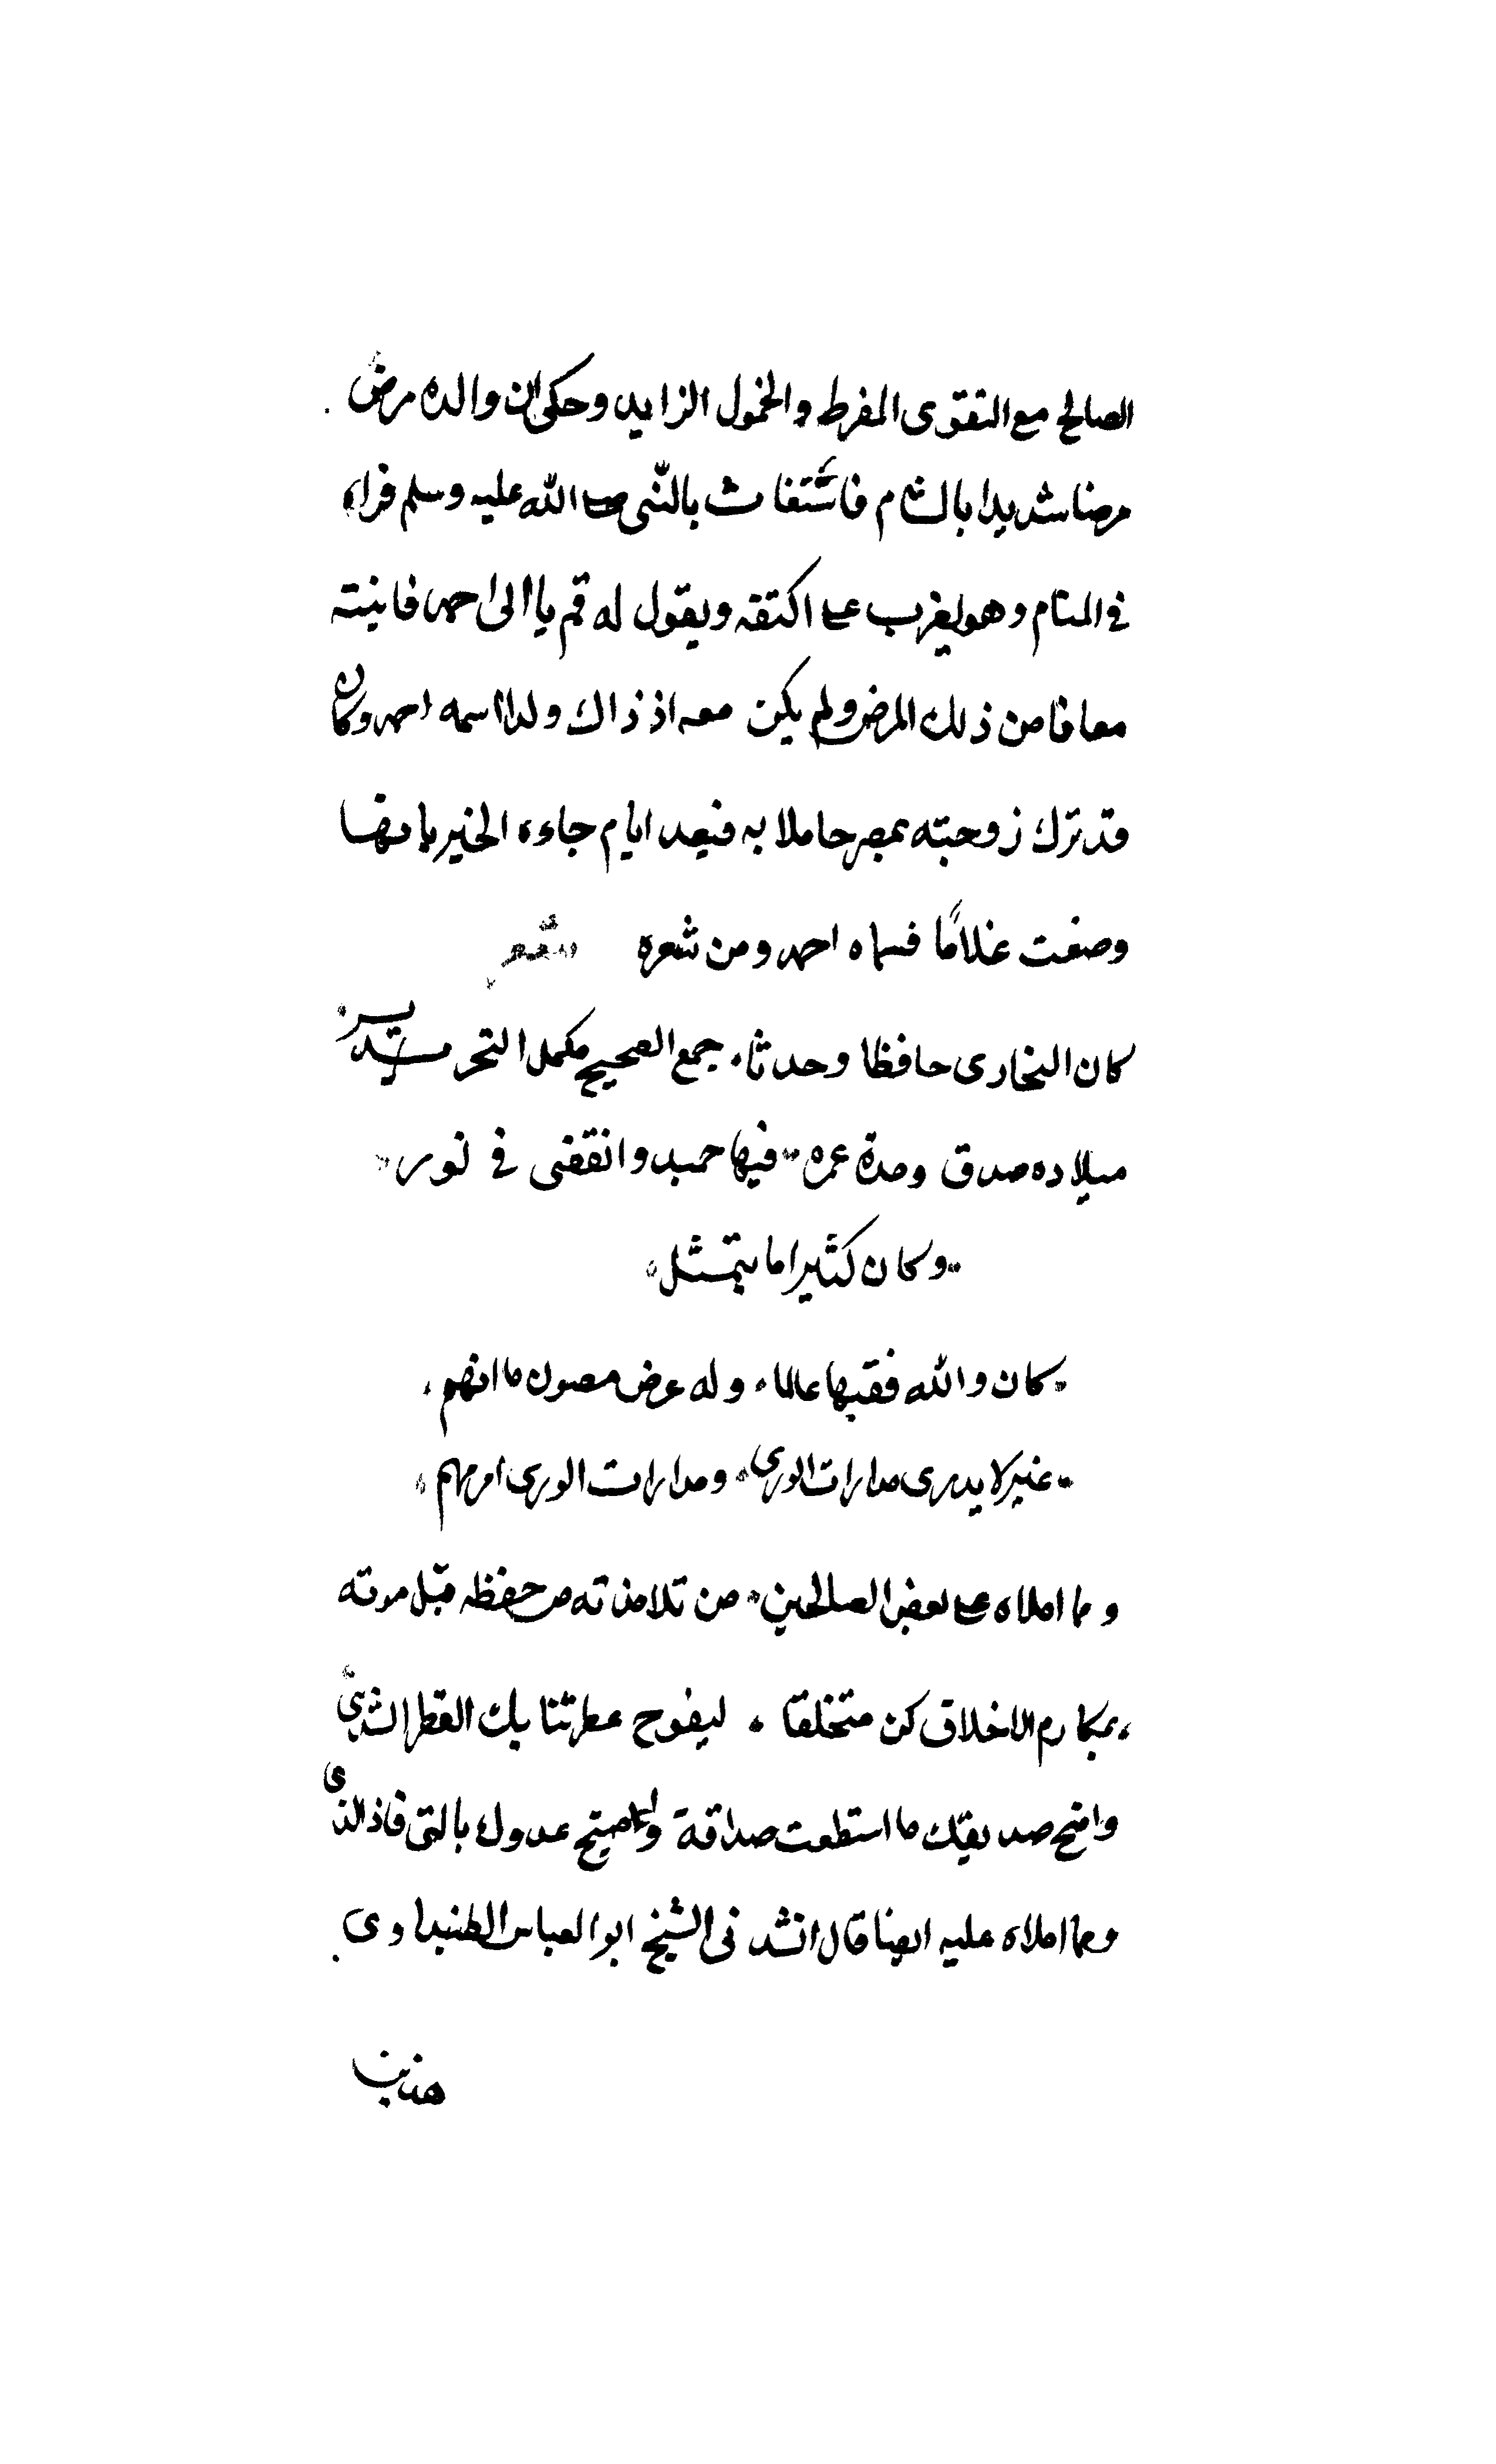 الصالح مع التقوى المفرط والخمول الزايد وحكى ان والده مرض
مرضا شديدا بالشام فاستغاث بالنبى صلى الله عليه وسلم فراه
فى المنام وهو يضرب على اكتفه ويقول له قم يا ابا احمد فانتبه
معافا من ذلك المرض ولم يكن معه اذ ذاك ولدا اسمه احمد وكان
قد ترك زوجته بمصر حاملا به فبعد ايام جاءه الخبر بانها
وضعت غلامًا فسماه احمد ومن شعره شعر
كان البخارى حافظا ومحدثا جمع الصحيح مكمل التحرير
ميلاده صدق ومدة عمره فيها حميد وانقضى فى نور
وكان كثيرا ما يتمثل
كان والله فقيها عالما وله عرض مصون ما اتهم
غير لا يدرى مدارات الورى ومدارات الورى امر مهم
ومما املاه على بعض الصالحين من تلامذته من حفظه قبل موته
بمكارم الاخلاق كن متخلقا ليفوح عطر ثنايك القطر الشذى
وانصح صديقك ما استطعت صداقة وادفع عدوك بالتى فاذ الذى
ومما املاه عليه ايضا قال انشدنى الشيخ ابو العباس الطنبداوى
هذين